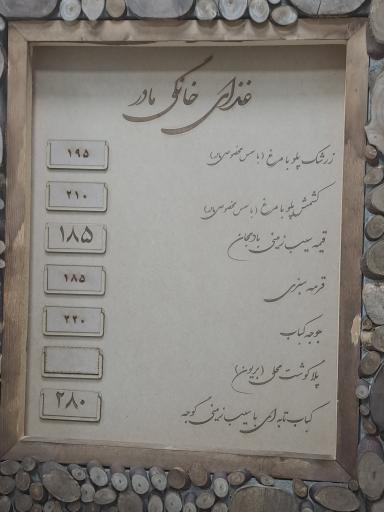 غذای خانگی مادر
زرشک پلو با مرغ (با سس مخصوص مادر) ۱۹۵
کشمش پلو با مرغ (با سس مخصوص مادر) ۲۱۰
قیمه سیب زمینی بادمجان ۱۸۵
قرمه سبزی ۱۸۵
جوجه کباب ۲۲۰
پلا گوشت محلی (بریون)
کباب تابه ای با سیب زمینی گوجه ۲۸۰